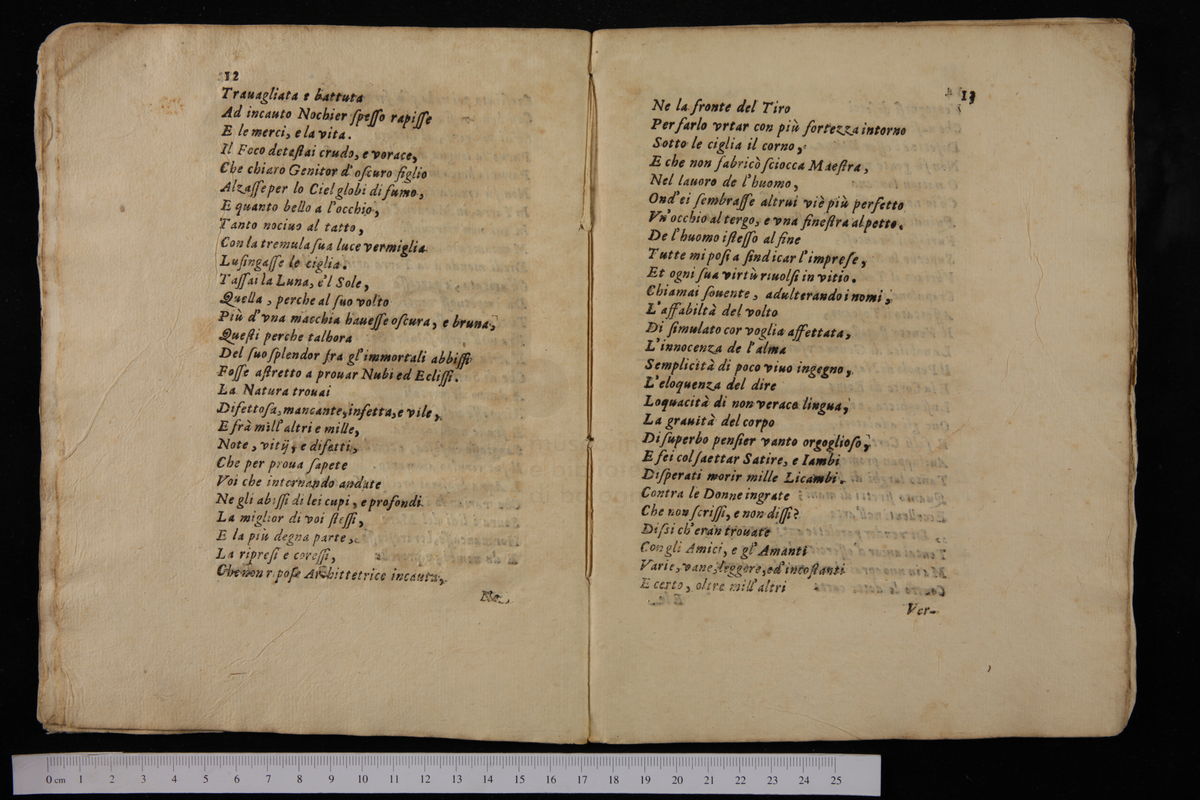 12
Trauagliata e battuta
Ad incauto Nochier ſpeſſo rapiſſe
E le merci, e la vita.
Il Foco deteſtai crudo, e vorace,
Che chiaro Genitor d'oſcuro figlio
Alzaſſe per lo Ciel globi di fumo,
E quanto bello a l'occhio,
Tanto nociuo al tatto,
Con la tremula ſua luce vermiglia
Luſingaſſe le ciglia.
Taſſai la Luna, e'l Sole,
Quella, perche al ſuo volto
Più d'vna macchia haueſſe oſcura, e bruna,
Queſti perche talhora
Del ſuo ſplendor fra gl'immortali abbiſſi
Foſſe aſtretto a prouar Nubi ed Ecliſſi.
La Natura trouai
Difettoſa, mancante, infetta, e vile,
E frà mill'altri e mille,
Note, vitij, e difetti,
Che per proua ſapete
Voi che internando andate
Ne gli abiſſi di lei cupi, e profondi.
La miglior di voi ſteſſi,
E la più degna parte,
La ripreſi e coreſſi,
Che non ripoſe Architettrice incauta,
Ne
13
Ne la fronte del Tiro
Per farlo vrtar con più fortezza intorno
Sotto le ciglia il corno,
E che non fabricò ſciocca Maeſtra,
Nel lauoro de l'huomo,
Ond'ei ſembraſſe altrui viè più perfetto
Vn'occhio al tergo, e vna fineſtra al petto.
De l'huomo iſteſſo al fine
Tutte mi poſi a ſindicar l'impreſe,
Et ogni ſua virtù riuolſi in vitio.
Chiamai ſouente, adulterando i nomi,
L'affabiltà del volto
Di ſimulato cor voglia affettata,
L'innocenza de l'alma
Semplicità di poco viuo ingegno,
L'eloquenza del dire
Loquacità di non verace lingua,
La grauità del corpo
Di ſuperbo penſier vanto orgoglioſo,
E fei col ſaettar Satire, e Iambi
Diſperati morir mille Licambi.
Contra le Donne ingrate
Che non ſcriſſi, e non diſſi?
Diſſi ch'eran trouate
Con gli Amici, e gl'Amanti
Varie, vane, leggere, ed incoſtanti
E certo, oltre mill'altri
Ver-
0 cm 1 2 3 4 5 6 7 8 9 10 11 12 13 14 15 16 17 18 19 20 21 22 23 24 25